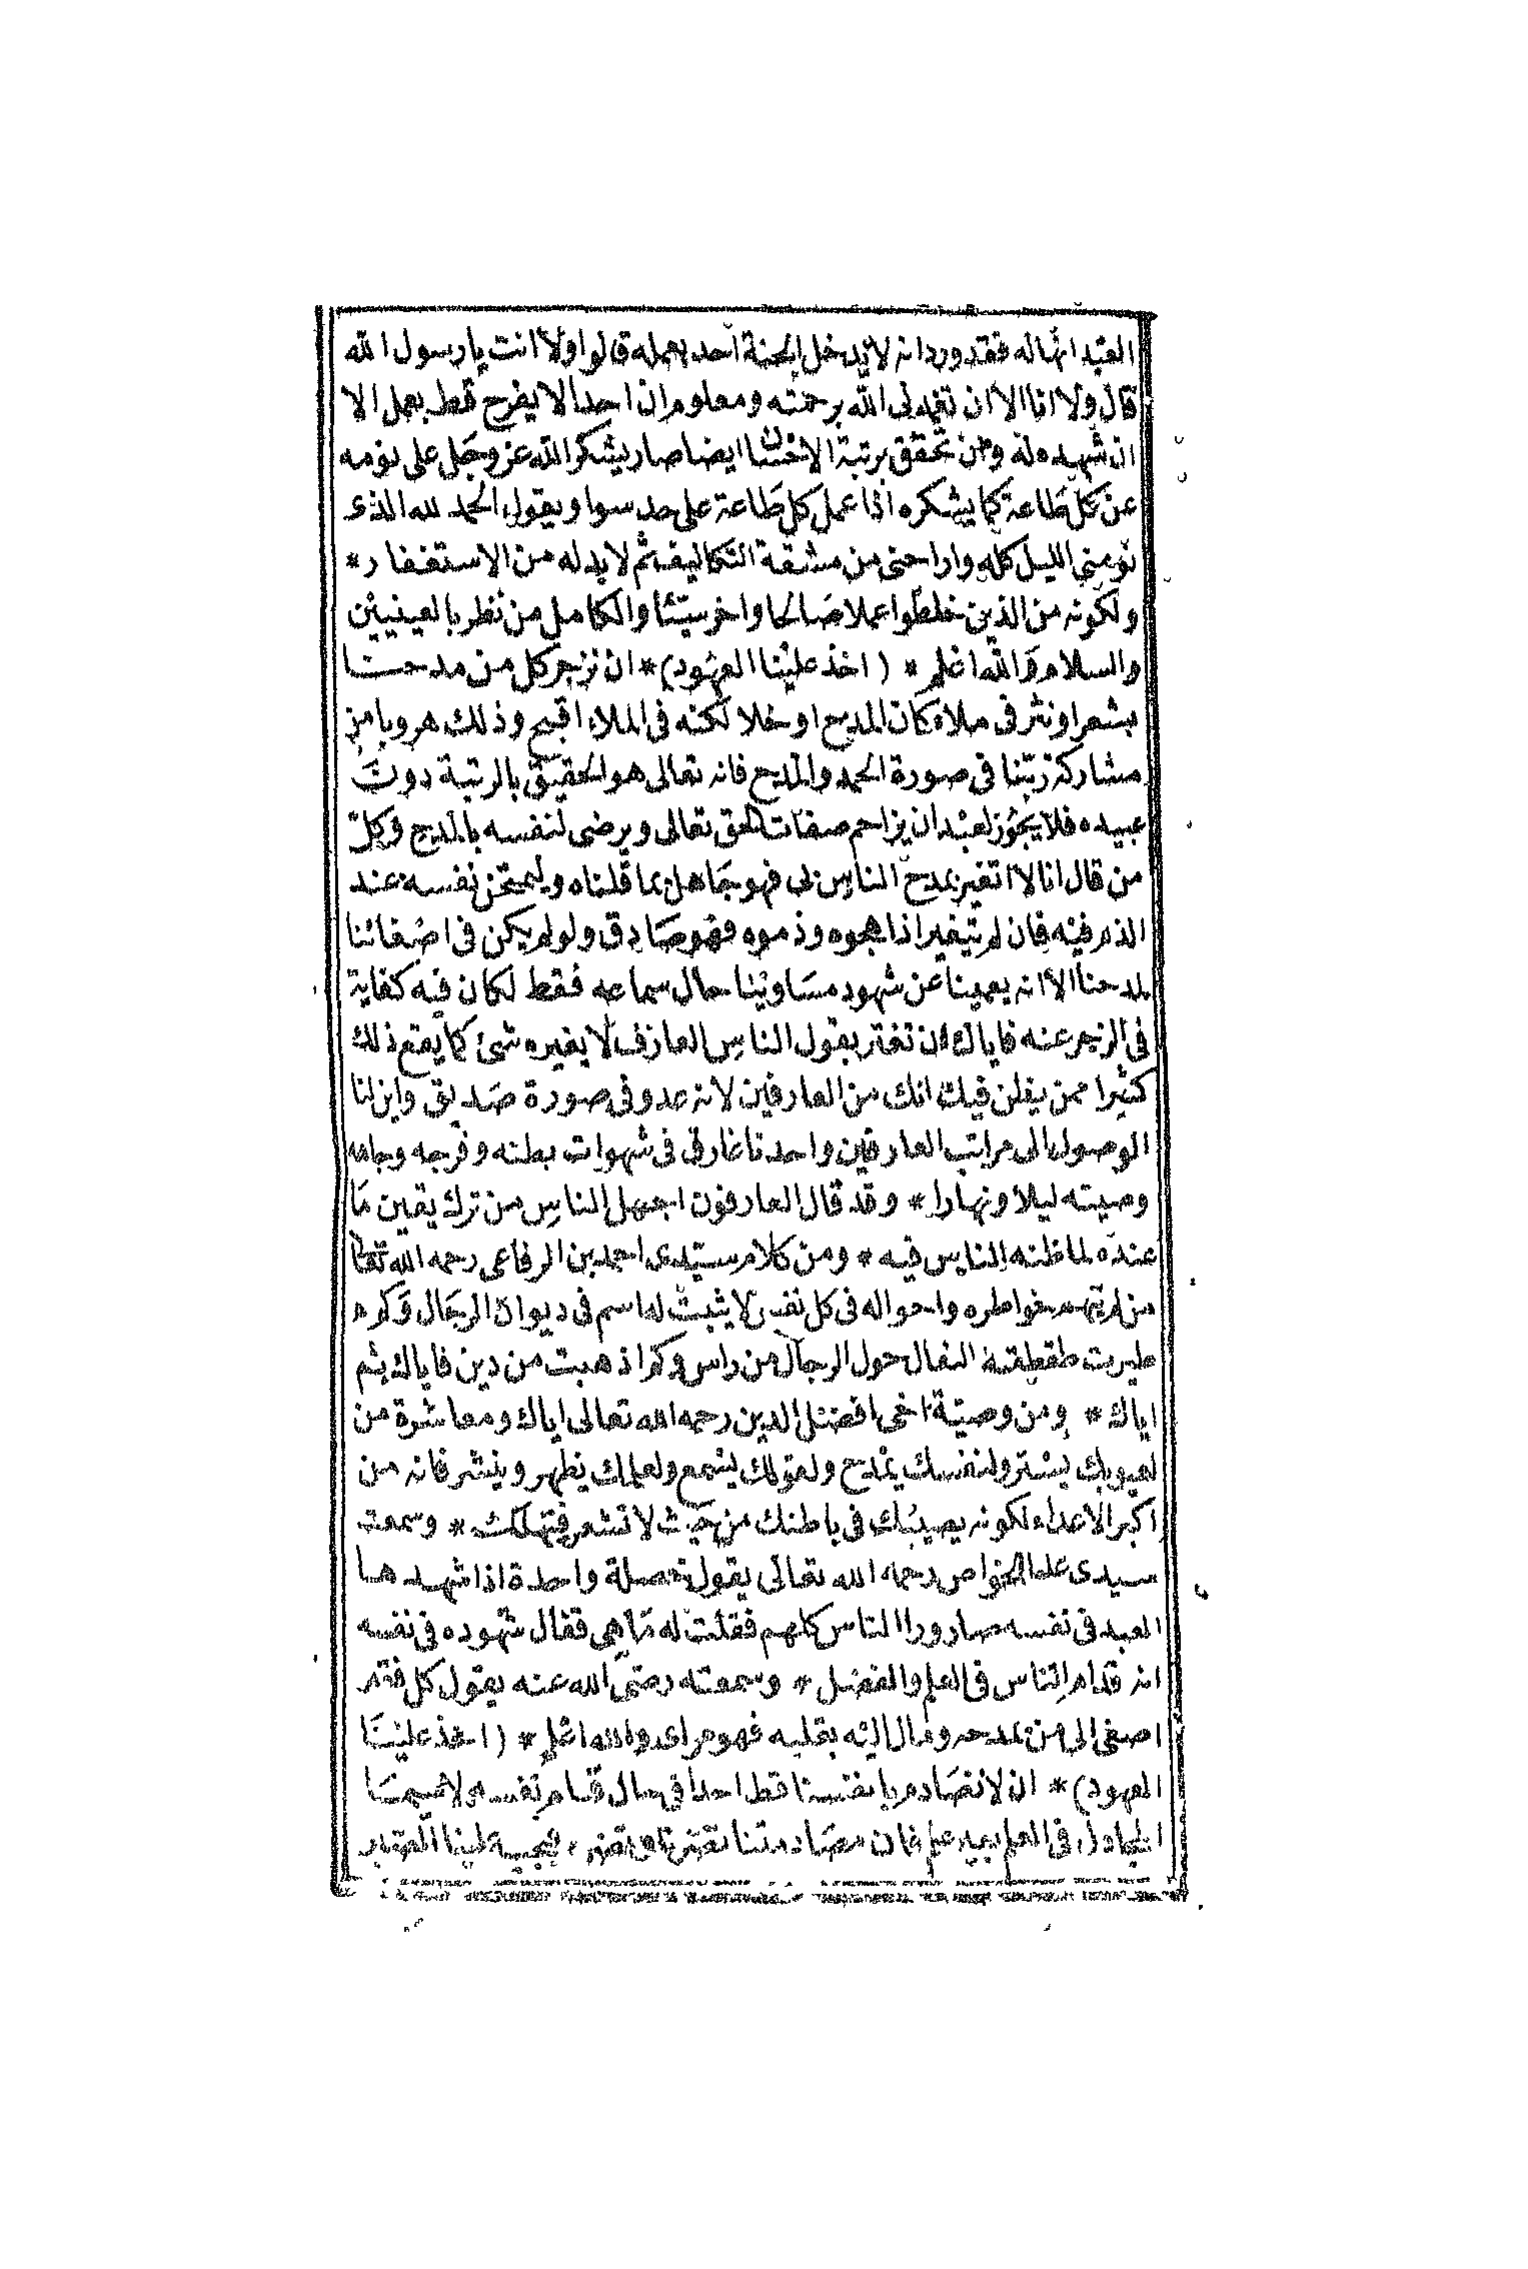 العبد انها له فقد ورد انه لا يدخل الجنة احد بعمله قالوا ولا انت يا رسول الله
قال ولا انا الا ان تغمدنى الله برحمته ومعلوم ان احدا لا يفرح قط بعمل الا
ان شهده له ومن تحقق برتبة الاحسان ايضا صار يشكر الله عز وجل على نومه
عن كل طاعة كما يشكره اذا عمل كل طاعة على حد سوا ويقول الحمد لله الذى
نومنى الليل كله واراحنى من مشقة التكاليف ثم لا بد له من الاستغفار *
ولكونه من الذين خلطوا عملا صالحا واخر سيئا والكامل من نظر بالعينيين
والسلام والله اعلم * (اخذ علينا العهود) * ان نزجر كل من مدحنا
بشعر او نثر فى ملاء كان المديح او خلا لكنه فى الملاء اقبح وذلك هروبا من
مشاركة ربنا فى صورة الحمد والمديح فانه تعالى هو الحقيق بالرتبة دون
عبيده فلا يجوز لعبد ان يزاحم صفات الحق تعالى ويرضى لنفسه بالمديح وكل
من قال انا لا اتغير بمدح الناس لى فهو جاهل بما قلناه وليمتحن نفسه عند
الذم فيه فان لم يتغير اذا هجوه وذموه فهو صادق ولو لم يكن فى اصغائنا
لمدحنا الا انه يعمينا عن شهود مساوينا حال سماعه فقط لكان فيه كفاية
فى الزجر عنه فاياك ان تغتر بقول الناس العارف لا يغيره شئ كما يقع ذلك
كثيرا ممن يظن فيك انك من العارفين لانه عدو فى صورة صديق واين لنا
الوصول الى مراتب العارفين واحدنا غارق فى شهوات بطنه وفرجه وجاهه
وصيته ليلا ونهارا * وقد قال العارفون اجهل الناس من ترك يقين ما
عنده لما ظنه الناس فيه * ومن كلام سيدى احمد بن الرفاعى رحمه الله تعالى
من لم يتهم خواطره واحواله فى كل نفس لا يثبت له اسم فى ديوان الرجال وكم
طيرت طقطقة النعال حول الرجال من راس وكم اذهبت من دين فاياك ثم
اياك * ومن وصية اخى افضل الدين رحمه الله تعالى اياك ومعاشرة من
لعيوبك يستر ولنفسك يمدح ولقولك يسمع ولعلمك يظهر وينشر فانه من
اكبر الاعداء لكونه يصيبك فى باطنك من حيث لا تشعر فتهلك * وسمعت
سيدى عليا الخواص رحمه الله تعالى يقول خصلة واحدة اذا شهدها
العبد فى نفسه صار ورا الناس كلهم فقلت له ما هى فقال شهوده فى نفسه
انه قدام الناس فى العلم والفضل * وسمعته رضى الله عنه يقول كل فقير
اصغى الى من يمدحه ومال اليه بقلبه فهو مراى والله اعلم * (اخذ علينا
العهود) * ان لا نصادم بانفسنا قط احدا فى حال قيام نفسه ولا سيما
المجادل فى العلم بغير علم فان مصادمتنا